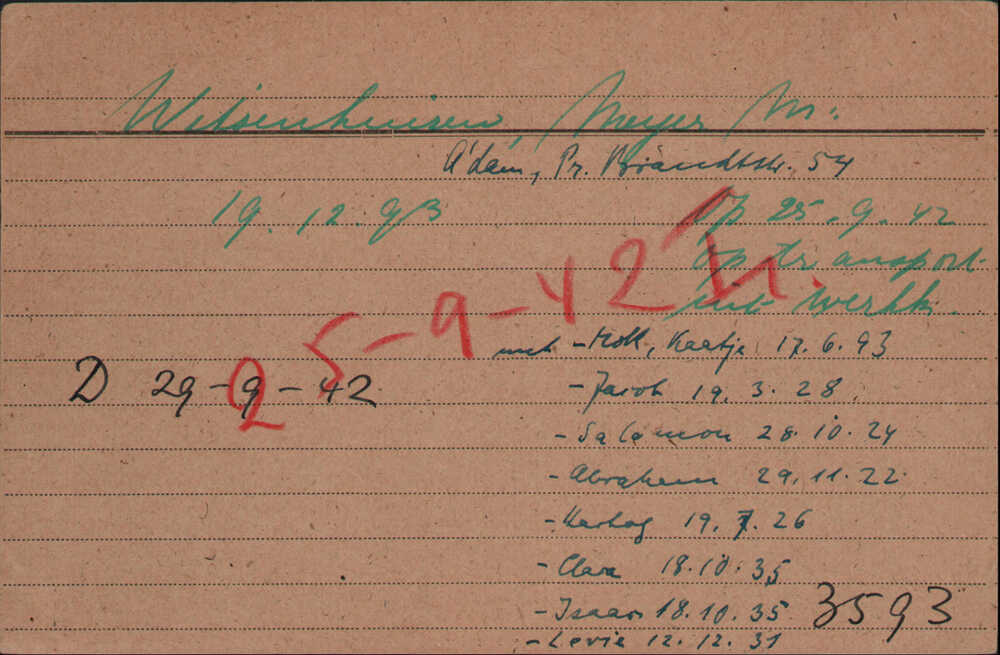 Witsenhuisen, Meyer M:
A'dam, Pr. Brandtstr. 54
19.12.93
Op 25.9.42
op transport
mit Werkk.
25-9-42 L.
mit - Mok, Kaatje 17.6.93
D 29-9-42
- Jacob 19.3.28
- Salomon 28.10.24
- Abraham 29.11.22
- Hartog 19.7.26
- Clara 18.10.35
- Isaac 18.10.35
3593
- Levie 12.12.31